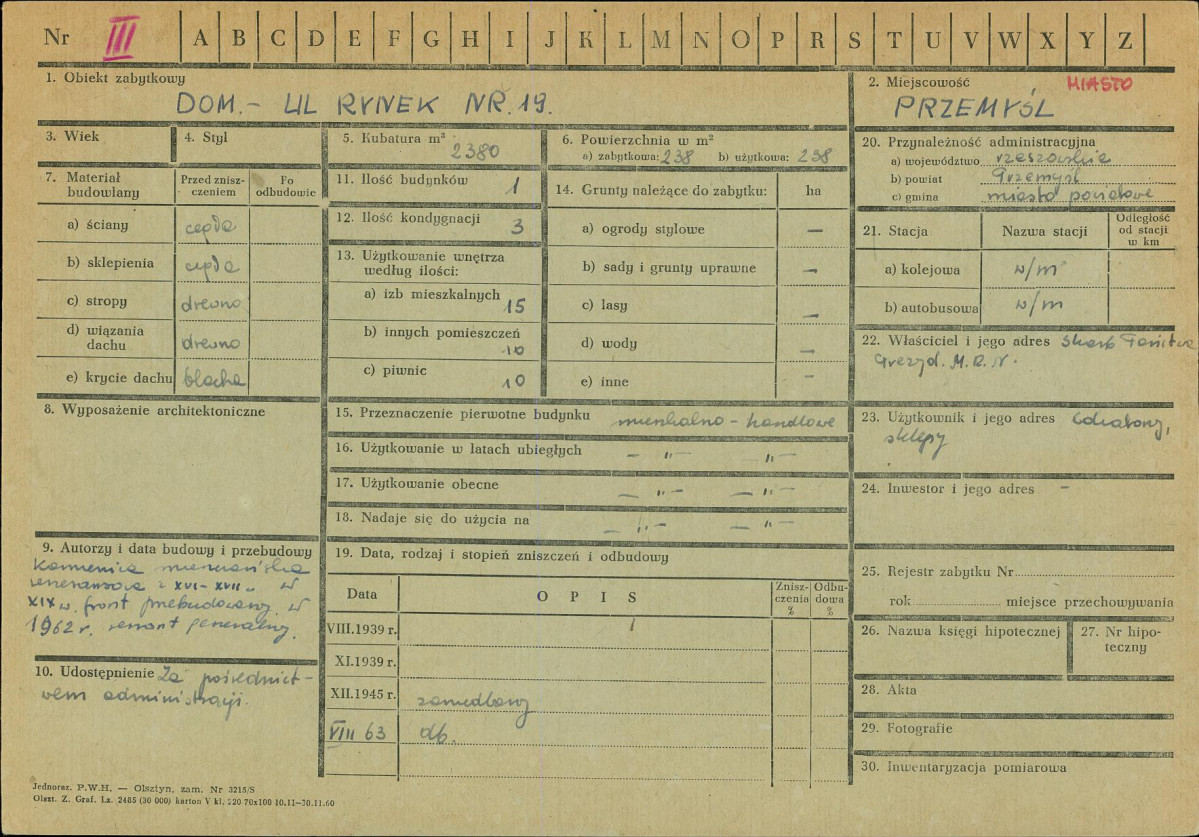 Nr III A B C D E F G H I J K L M N O P R S T U V W X Y Z
1. Obiekt zabytkowy
DOM.- UL RYNEK NR. 19.
2. Miejscowość MIASTO
PRZEMYŚL
3. Wiek
4. Styl
5. Kubatura m³
2380
6. Powierzchnia w m²
a) zabytkowa: 238 b) użytkowa: 238
20. Przynależność administracyjna
a) województwo rzeszowskie
b) powiat Przemyśl
c) gmina miasto powiatowe
7. Materiał budowlany
Przed zniszczeniem
Po odbudowie
a) ściany cegła
b) sklepienia cegła
c) stropy drewno
d) wiązania dachu drewno
e) krycie dachu blacha
11. Ilość budynków 1
12. Ilość kondygnacji 3
13. Użytkowanie wnętrza
według ilości:
a) izb mieszkalnych 15
b) innych pomieszczeń
10
c) piwnic
10
14. Grunty należące do zabytku: ha
a) ogrody stylowe —
b) sady i grunty uprawne —
c) lasy —
d) wody —
e) inne -
21. Stacja
Nazwa stacji
Odległość
od stacji
w km
a) kolejowa w/m
b) autobusowa w/m
22. Właściciel i jego adres Skarb Państwa
Prezyd. M.R.N.
8. Wyposażenie architektoniczne
15. Przeznaczenie pierwotne budynku mieszkalno - handlowe
16. Użytkowanie w latach ubiegłych — " — — " —
17. Użytkowanie obecne — " — — " —
18. Nadaje się do użycia na — " — — " —
23. Użytkownik i jego adres
sklepy
24. Inwestor i jego adres —
9. Autorzy i data budowy i przebudowy
Kamienica mieszczańska
renesansowa z XVI-XVII w. W
XIX w. front przebudowany. W
1962 r. remont generalny.
10. Udostępnienie Za pośrednict-
wem administracji.
19. Data, rodzaj i stopień zniszczeń i odbudowy
Data
O P I S
Znisz-
czenia
%
Odbu-
dowa
%
VIII.1939 r.
XI.1939 r.
XII.1945 r. zaniedbany
VIII 63 db.
25. Rejestr zabytku Nr
rok miejsce przechowywania
26. Nazwa księgi hipotecznej
27. Nr hipo-
teczny
28. Akta
29. Fotografie
30. Inwentaryzacja pomiarowa
Jednoraz. P.W.H. — Olsztyn, zam. Nr 3215/S
Olszt. Z. Graf. Lz. 2485 (30 000) karton V kl. 220 70x100 10.11—30.11.60